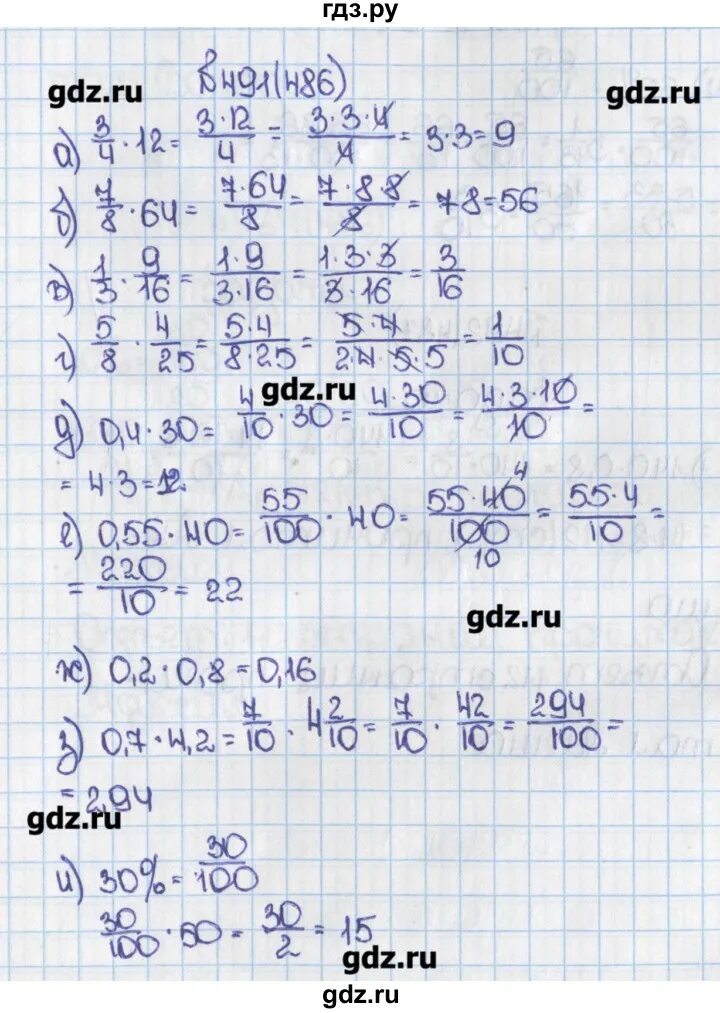 гдз.ру
№491(486)
gdz.ru gdz.ru
а) 3/4 · 12 = 3·12/4 = 3·3·4/4 = 3·3 = 9
б) 7/8 · 64 = 7·64/8 = 7·8·8/8 = 78 = 56
в) 1/3 · 9/16 = 1·9/3·16 = 1·3·3/3·16 = 3/16
г) 5/8 · 4/25 = 5·4/8·25 = 5·4/2·4·5·5 = 1/10
gdz.ru
д) 0,4·30 = 4/10 · 30 = 4·30/10 = 4·3·10/10 =
= 4·3 = 12
е) 0,55·40 = 55/100 · 40 = 55·40/100 4 10 = 55·4/10 =
= 220/10 = 22
gdz.ru
ж) 0,2·0,8 = 0,16
з) 0,7·4,2 = 7/10 · 4 2/10 = 7/10 · 42/10 = 294/100 =
= 2,94
gdz.ru
и) 30% = 30/100
30/100 · 50 = 30/2 = 15
gdz.ru
gdz.ru